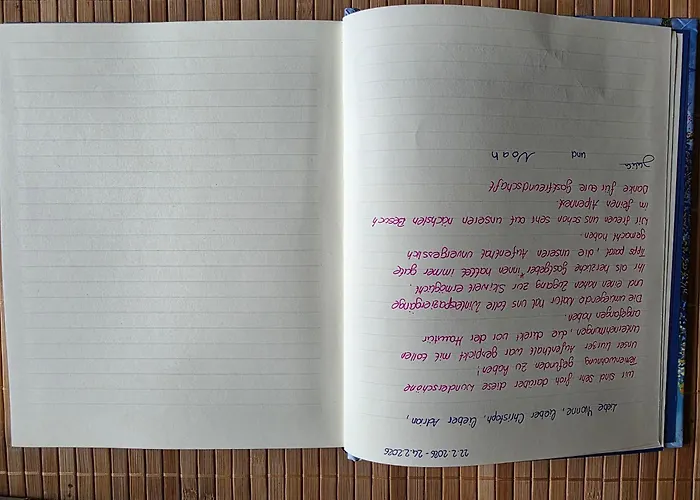 22.2.2026 - 24.2.2026
Liebe Yvonne, lieber Christoph, lieber Adrian,
wir sind sehr froh darüber diese wunderschöne
Ferienwohnung gefunden zu haben!
Unser kurzer Aufenthalt war gespickt mit tollen
Unternehmungen, die direkt vor der Haustür
angefangen haben.
Die umliegende Natur hat uns tolle Winterspaziergänge
und einen nahen Zugang zur Skiwelt ermöglicht.
Ihr als herzliche Gastgeber*innen hattet immer gute
Tipps parat, die unseren Aufenthalt unvergesslich
gemacht haben.
Wir freuen uns schon sehr auf unseren nächsten Besuch
im feinen Alpennest.
Danke für eure Gastfreundschaft
Julia und Noah